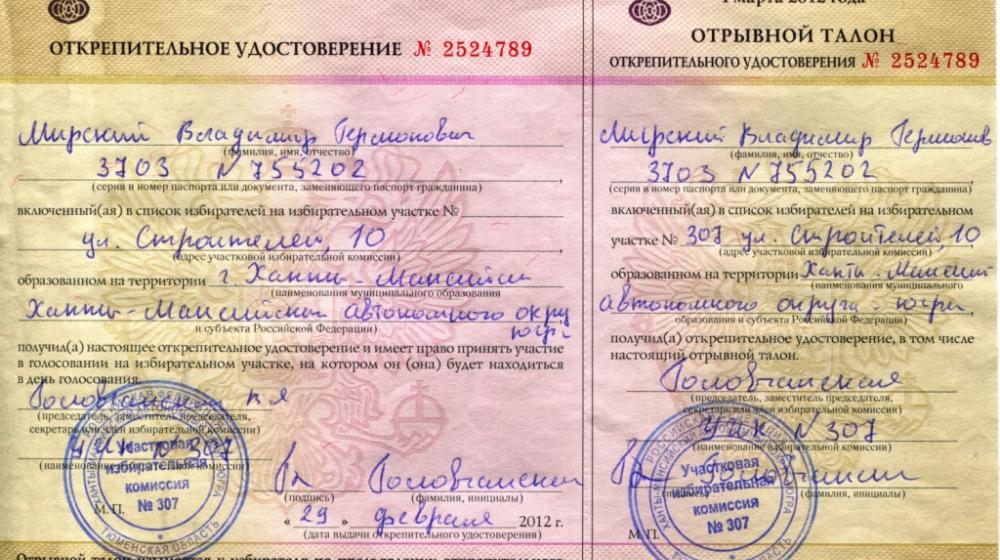 ОТКРЕПИТЕЛЬНОЕ УДОСТОВЕРЕНИЕ № 2524789
Мирский Владимир Германович
(фамилия, имя, отчество)
3703 N 755202
(серия и номер паспорта или документа, заменяющего паспорт гражданина)
включенный(ая) в список избирателей на избирательном участке №
ул. Строителей, 10
(адрес участковой избирательной комиссии)
образованном на территории г. Ханты-Мансийск
(наименования муниципального образования
Ханты-Мансийский автономного окру
и субъекта Российской Федерации)
получил(а) настоящее открепительное удостоверение и имеет право принять участие
в голосовании на избирательном участке, на котором он (она) будет находиться
в день голосования.
(председатель, заместитель председателя,
секретарь или член избирательной комиссии)
УИК N 307
(наименование избирательной комиссии)
(подпись) (фамилия, инициалы)
М.П.
« 29 » февраля 2012 г.
(дата выдачи открепительного удостоверения)
Участковая
избирательная
комиссия
№ 307
ТЮМЕНСКАЯ ОБЛАСТЬ
марта 2012 года
ОТРЫВНОЙ ТАЛОН
ОТКРЕПИТЕЛЬНОГО УДОСТОВЕРЕНИЯ № 2524789
Мирский Владимир
(фамилия, имя, отчество)
3703 N 755202
(серия и номер паспорта или документа, заменяющего паспорт гражданина)
включенный(ая) в список избирателей на избирательном
участке № 307 ул. Строителей, 10
(адрес участковой избирательной комиссии)
образованном на территории Ханты-Мансий
(наименования муниципального
автономного округа - Югры
образования и субъекта Российской Федерации)
получил(а) открепительное удостоверение, в том числе
настоящий отрывной талон.
(председатель, заместитель председателя,
секретарь или член избирательной комиссии)
УИК N 307
(наименование избирательной комиссии)
(подпись) (фамилия, инициалы)
М.П.
Участковая
избирательная
комиссия
№ 307